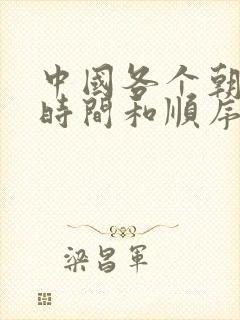 中國各个朝
時間和順序
梁昌軍